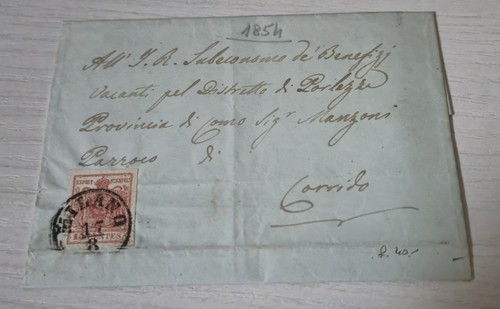 1854
All' I. R. Subeconomo de' Benefizj
vacanti pel Distretto di Porlezza
Provincia di Como Sigr Manzoni
Parroco di
Corrido
MILANO
17
8
CENTES